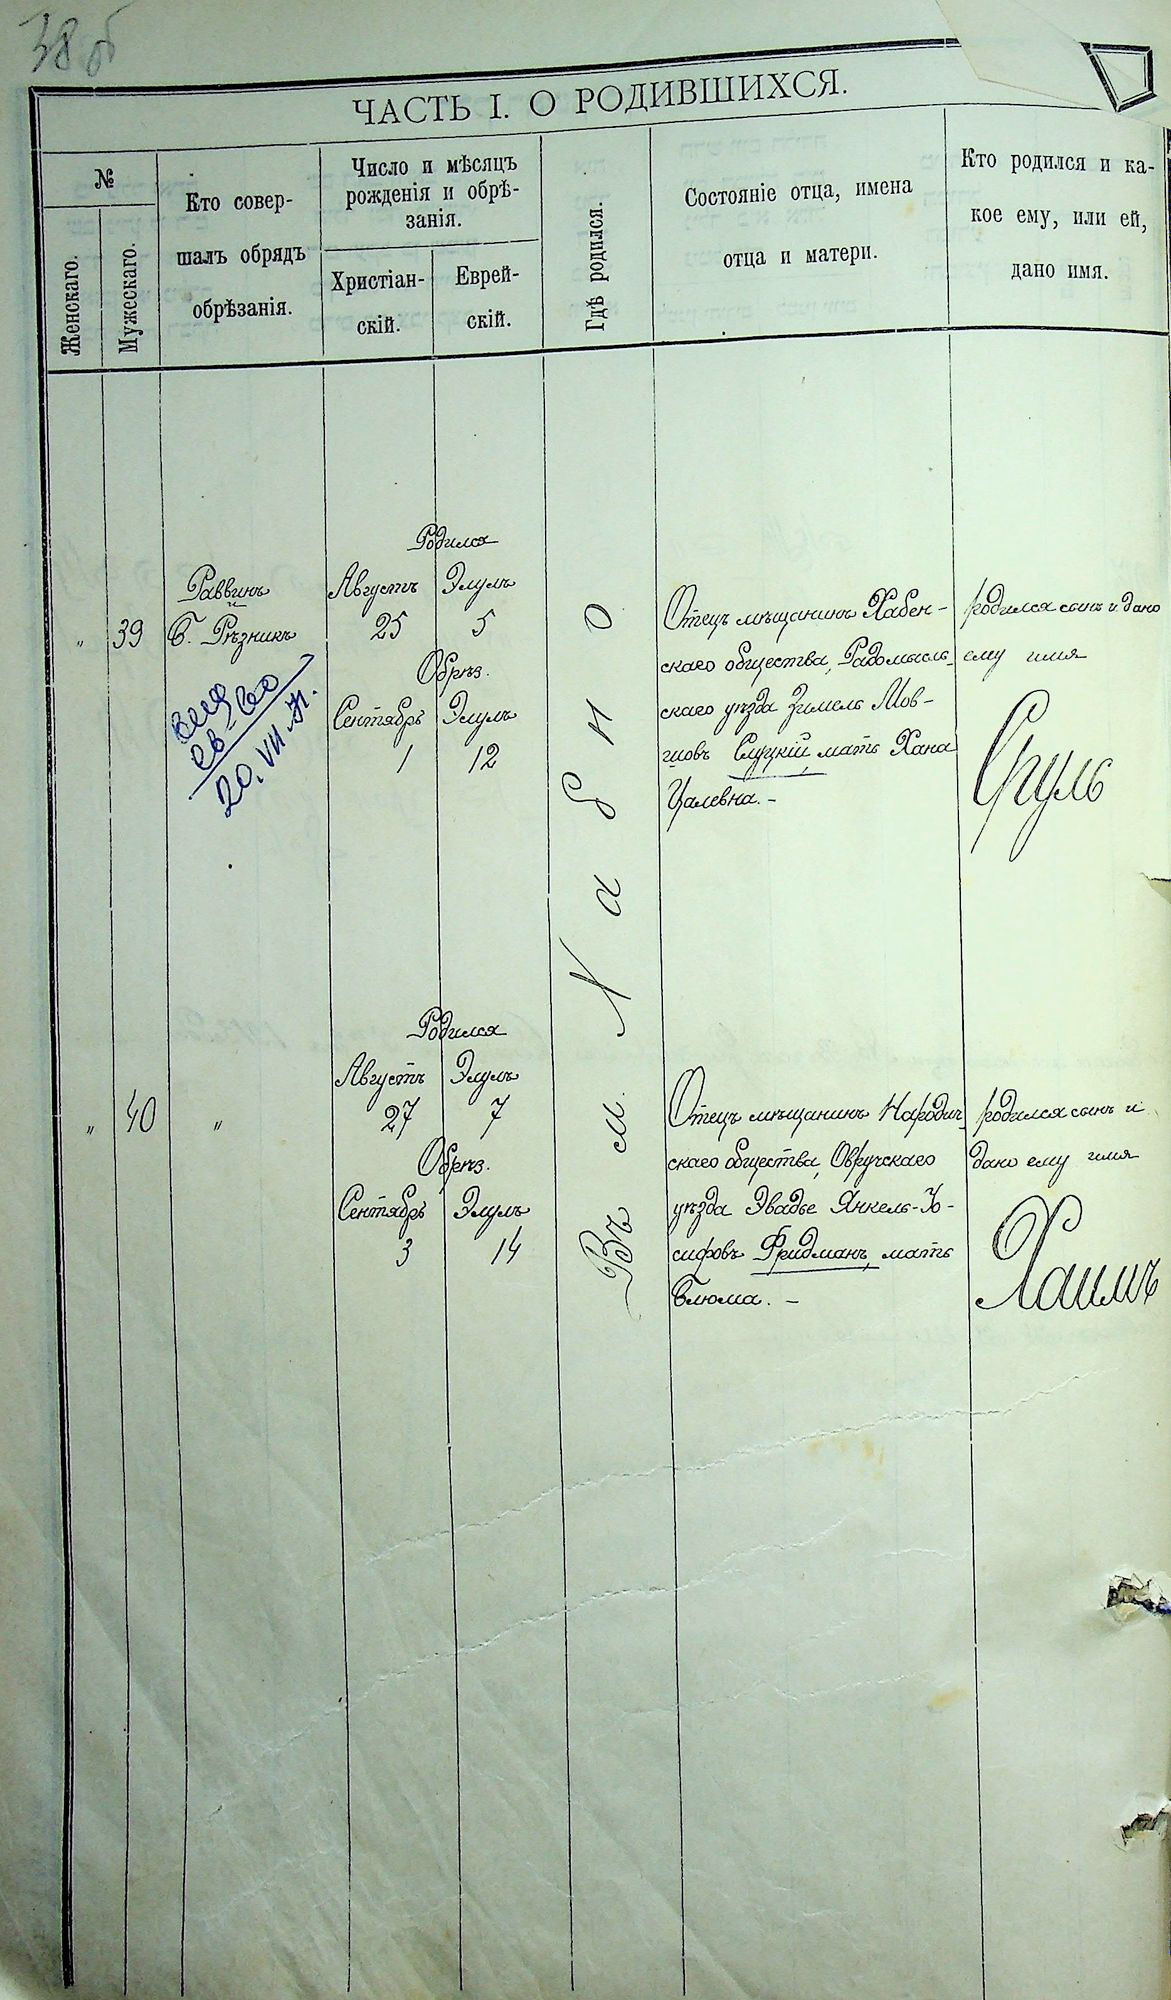 38 об
ЧАСТЬ I. О РОДИВШИХСЯ.
№
Женскаго.
Мужескаго.
Кто совер-
шалъ обрядъ
обрѣзанія.
Число и мѣсяцъ
рожденія и обрѣ-
занія.
Христіан-
скій.
Еврей-
скій.
Гдѣ родился.
Состояніе отца, имена
отца и матери.
Кто родился и ка-
кое ему, или ей,
дано имя.
Въ м. Хабно
„ 39
Раввинъ
Б. Рѣзникъ
20. VII
Родился
Августъ Элулъ
25 5
Обрѣз.
Сентябрь Элулъ
1 12
Отецъ мѣщанинъ Хабен-
скаго общества, Радомысль-
скаго уѣзда Зимель Мов-
шовъ Слуцкій, мать Хана
Цалевна. –
родился сынъ и дано
ему имя
Сруль
„ 40 „
Родился
Августъ Элулъ
27 7
Обрѣз.
Сентябрь Элулъ
3 14
Отецъ мѣщанинъ Народич-
скаго общества, Овручскаго
уѣзда Эвадье Янкель-Іо-
сифовъ Фридманъ, мать
Блюма. –
родился сынъ и
дано ему имя
Хаимъ